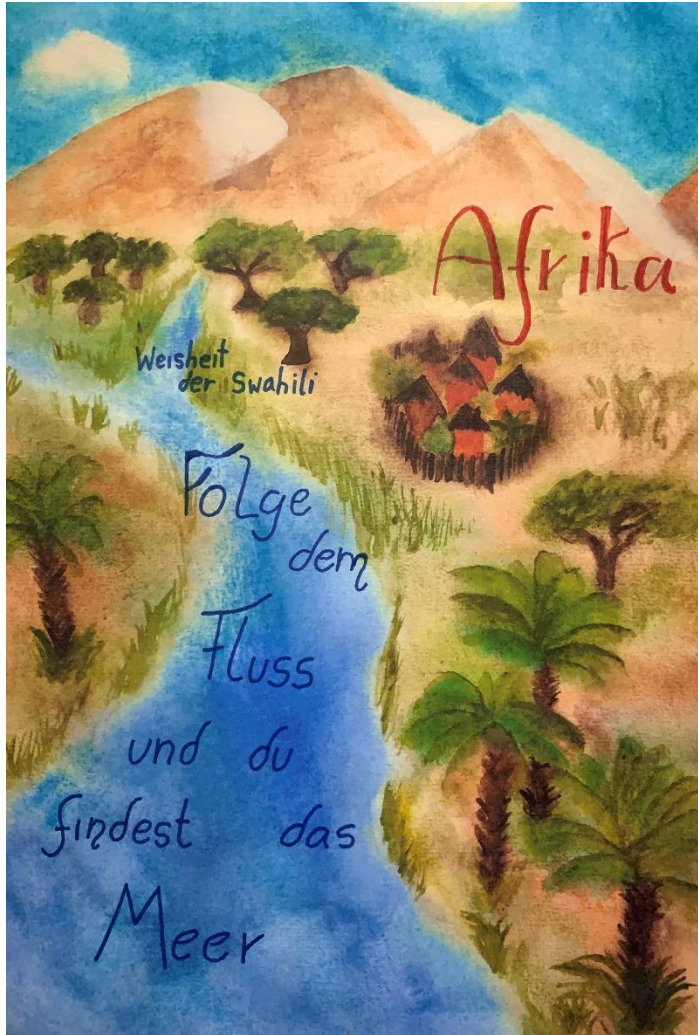 Afrika
Weisheit
der Swahili
Folge
dem
Fluss
und du
findest das
Meer